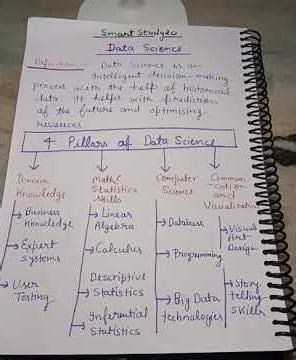 Smart Study20
Data Science
Definition - Data Science is an
Intelligent decision-making
process with the help of historical
data. It helps with prediction
of the future and optimising
resources
4 Pillars of Data Science
Domain
Knowledge
Business
Knowledge
Expert
Systems
User
Testing
Math &
Statistics
Skills
Linear
Algebra
Calculus
Descriptive
Statistics
Inferential
Statistics
Computer
Science
Database
Programming
Big Data
technologies
Communi
-cation
and
Visualization
Visual
Art
Design
Story
telling
Skills